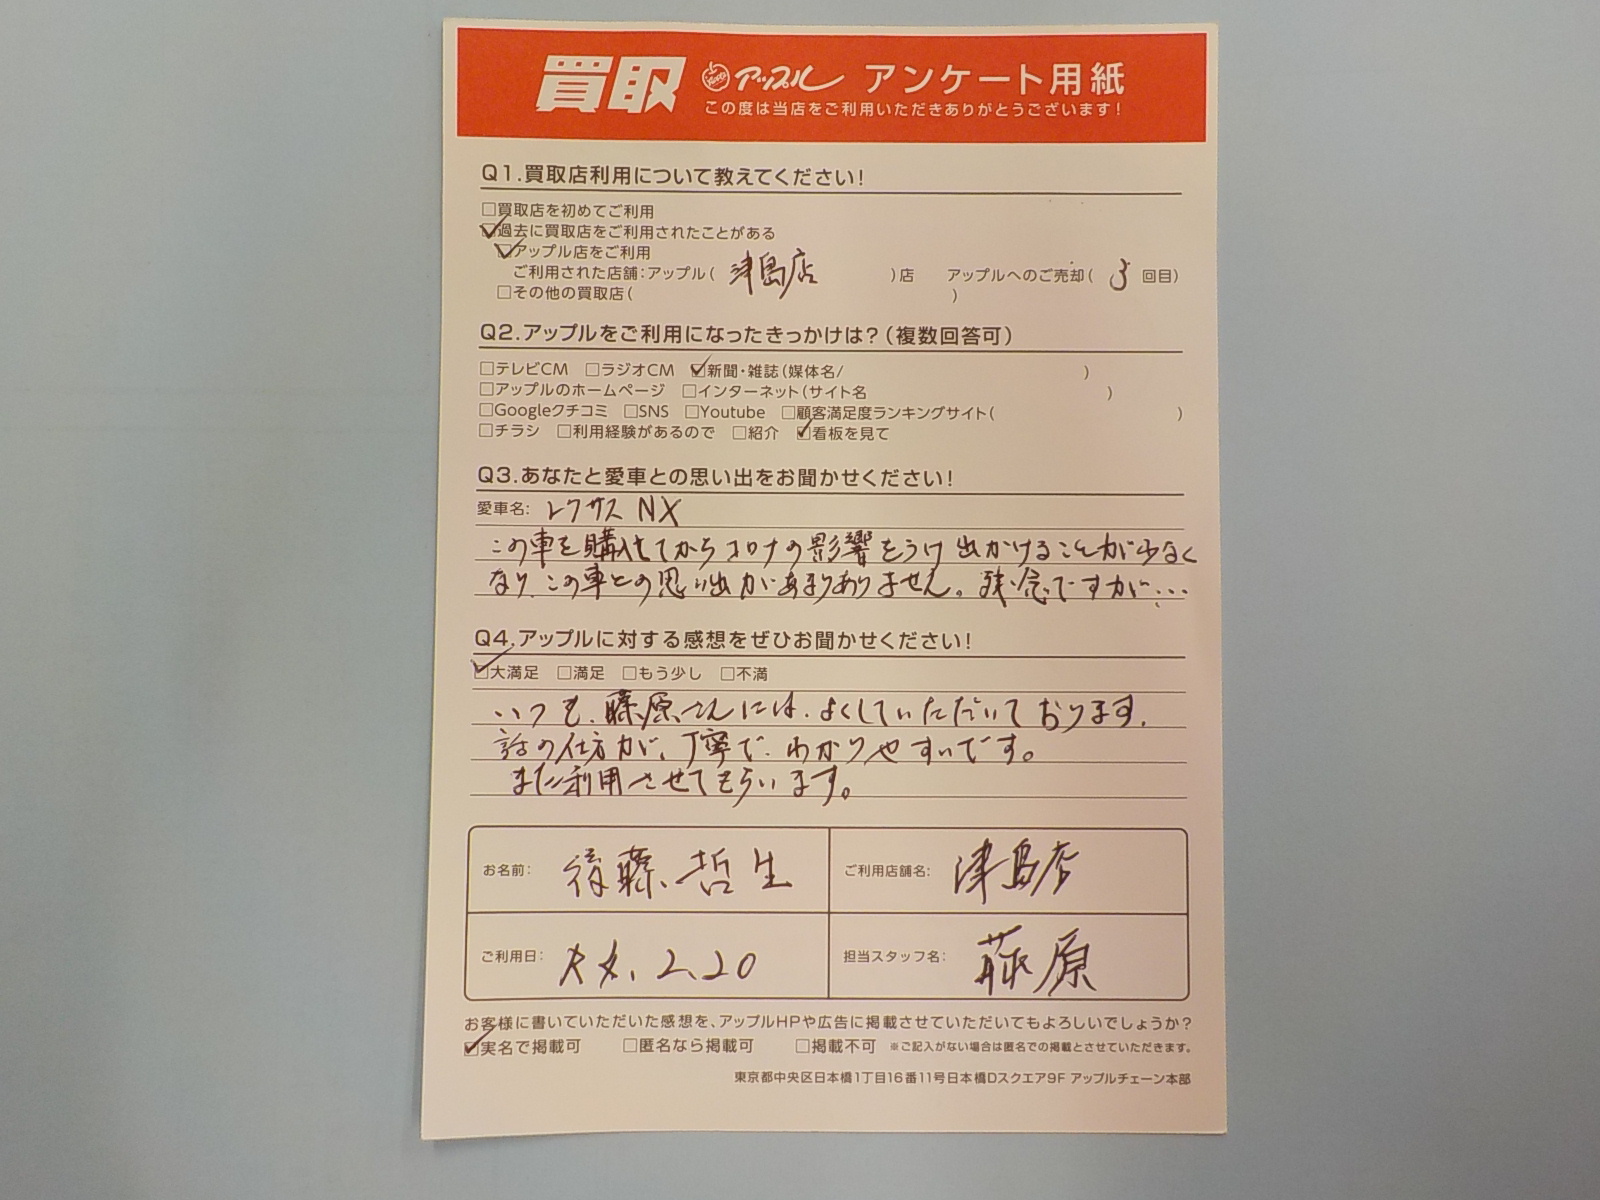 買取 アップル アンケート用紙
この度は当店をご利用いただきありがとうございます!
Q1.買取店利用について教えてください!
□買取店を初めてご利用
☑過去に買取店をご利用されたことがある
☑アップル店をご利用
ご利用された店舗:アップル( 津島店 )店 アップルへのご売却( 3 回目)
□その他の買取店( )
Q2.アップルをご利用になったきっかけは?(複数回答可)
□テレビCM □ラジオCM ☑新聞・雑誌(媒体名/ )
□アップルのホームページ □インターネット(サイト名 )
□Googleクチコミ □SNS □Youtube □顧客満足度ランキングサイト( )
□チラシ □利用経験があるので □紹介 ☑看板を見て
Q3.あなたと愛車との思い出をお聞かせください!
愛車名: レクサス NX
この車を購入してからコロナの影響をうけ出かけることが少なく
なり、この車との思い出があまりありません。残念ですが…
Q4.アップルに対する感想をぜひお聞かせください!
☑大満足 □満足 □もう少し □不満
いつも、藤原さんには、よくしていただいております。
話の仕方が、丁寧で、わかりやすいです。
また利用させてもらいます。
お名前: 後藤 哲生 ご利用店舗名: 津島店
ご利用日: 2.20 担当スタッフ名: 藤原
お客様に書いていただいた感想を、アップルHPや広告に掲載させていただいてもよろしいでしょうか?
☑実名で掲載可 □匿名なら掲載可 □掲載不可 ※ご記入がない場合は匿名での掲載とさせていただきます。
東京都中央区日本橋1丁目16番11号日本橋Dスクエア9F アップルチェーン本部